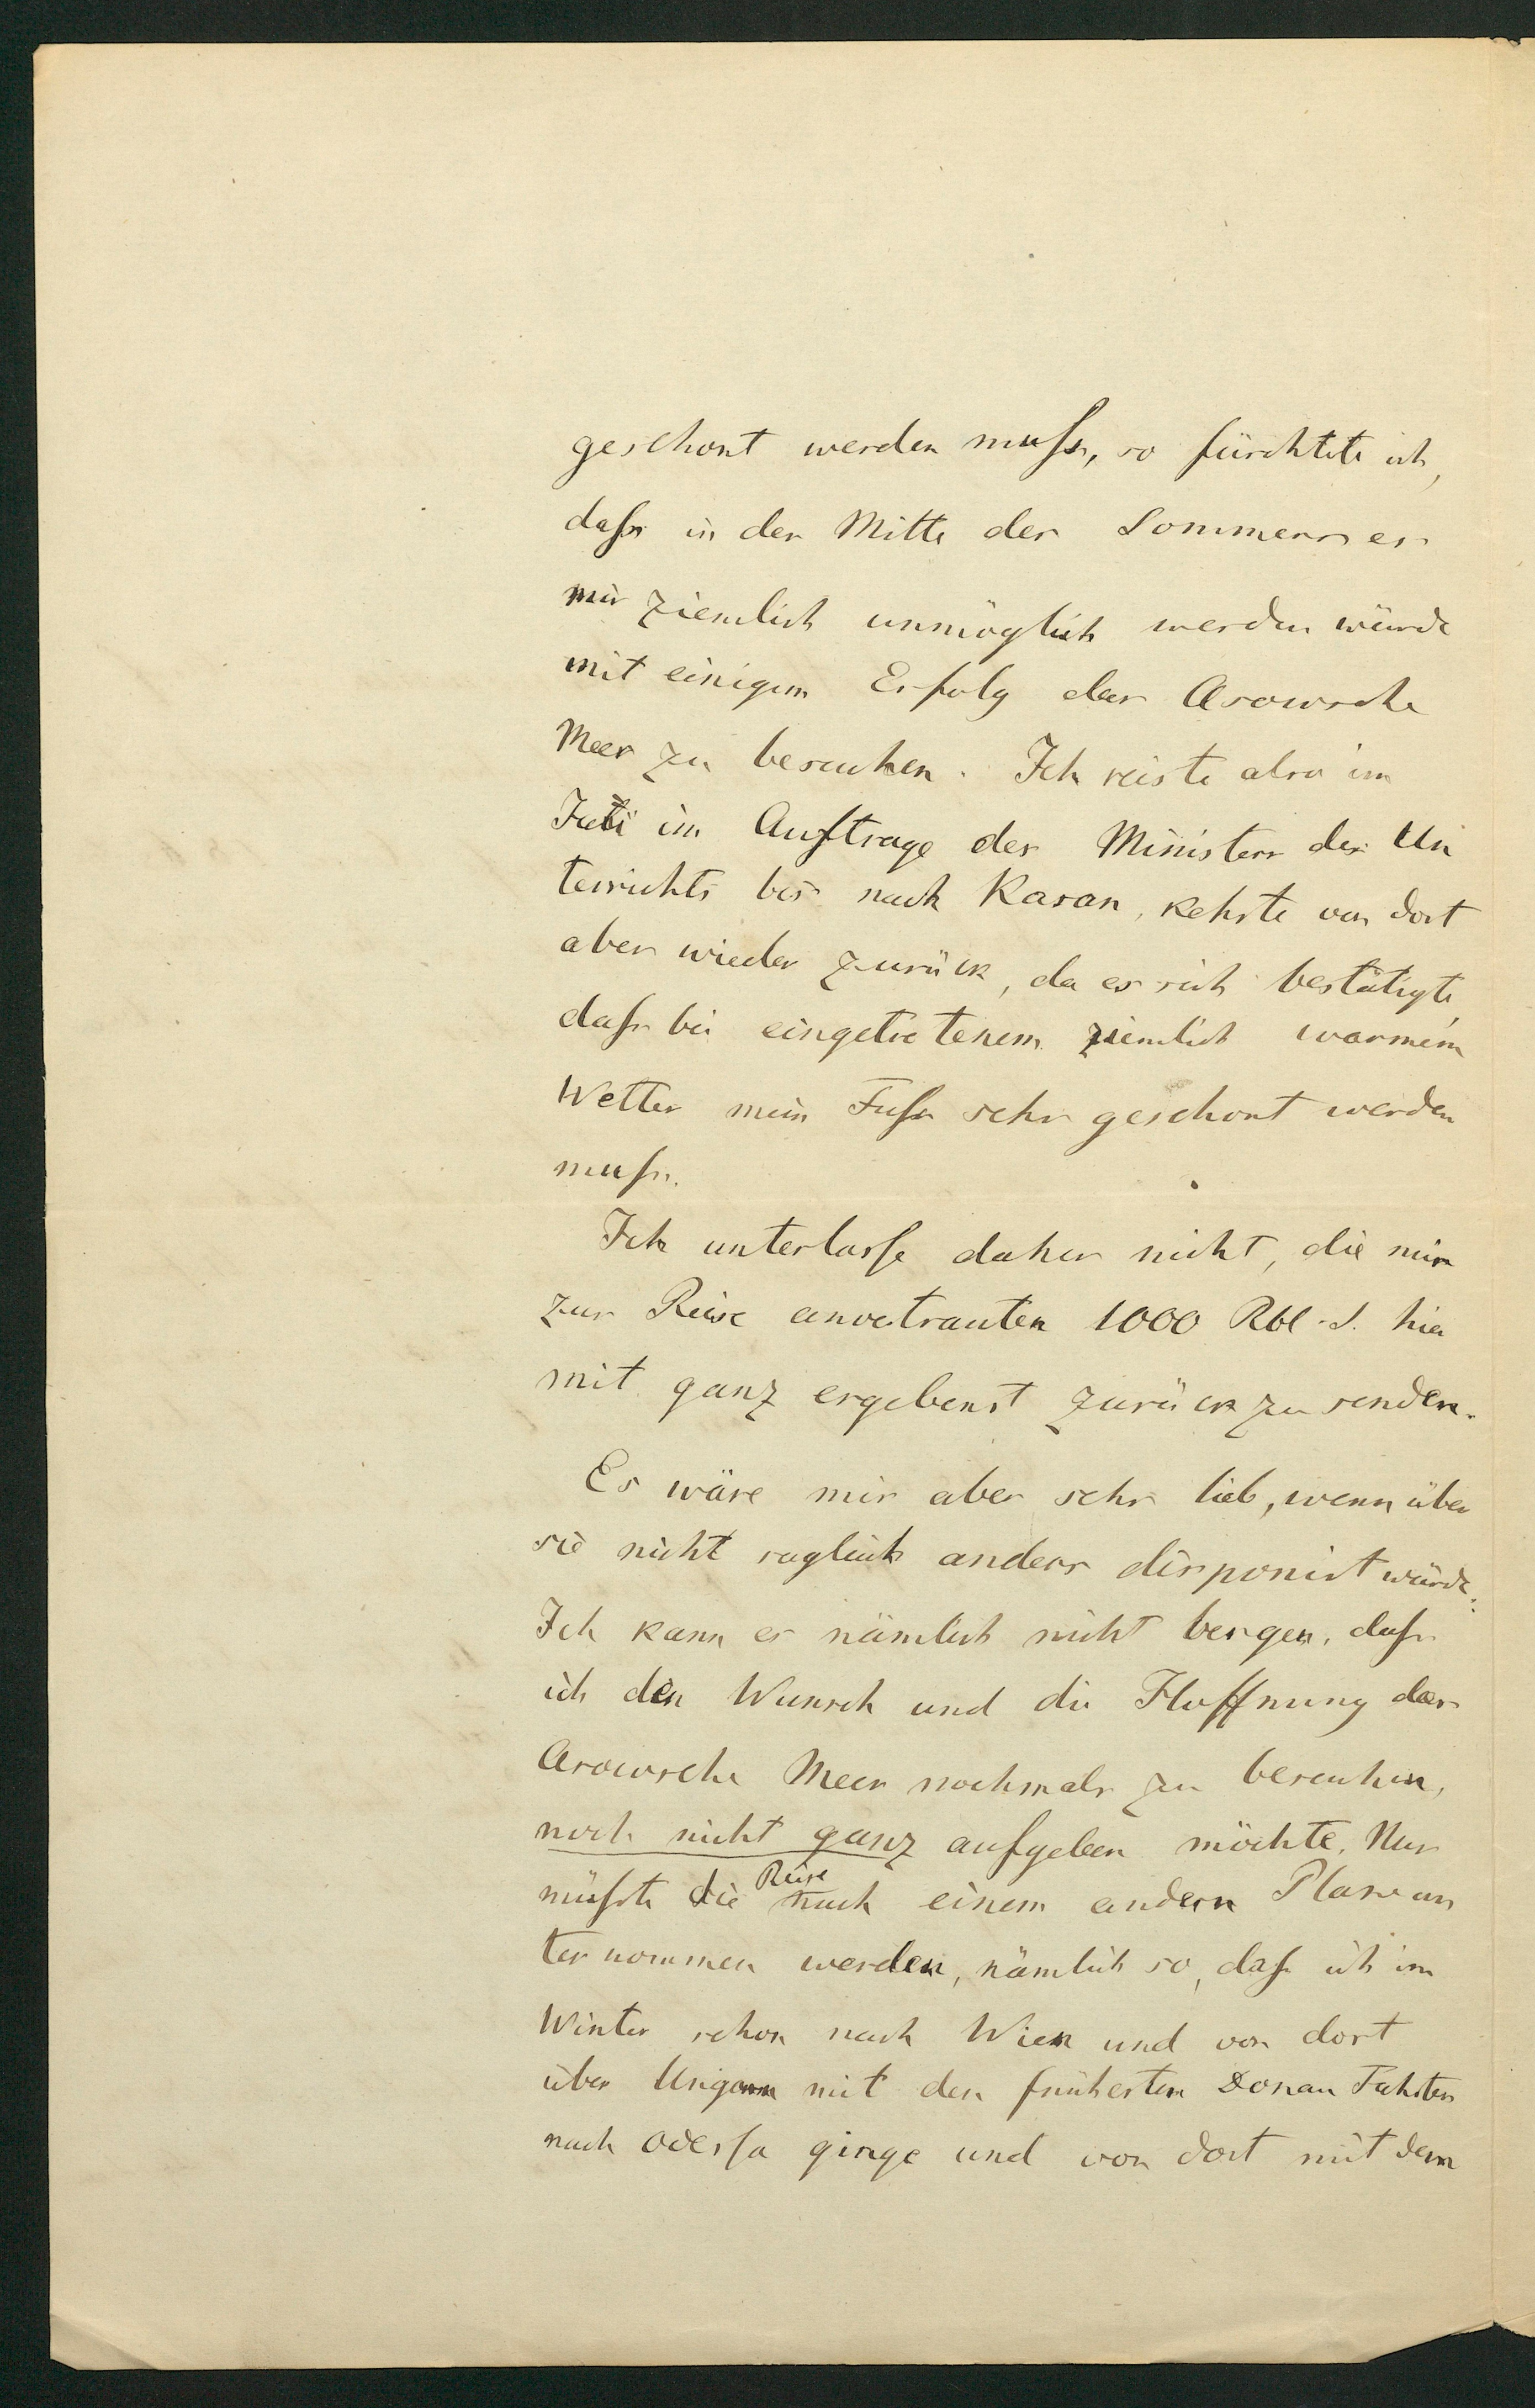 geschont werden muſs, so fürchtete ich,
daſs in der Mitte des Sommers es
mir ziemlich unmöglich werden würde
mit einigem Erfolg das Asowsche
Meer zu besuchen. Ich reiste also im
Juli im Auftrage des Ministers des Un
terrichts bis nach Kasan, kehrte von dort
aber wieder zurück, da es sich bestätigte,
daſs bei eingetretenem ziemlich warmem
Wetter mein Fuſs sehr geschont werden
muſs.
Ich unterlaſse daher nicht, die mir
zur Reise anvertrauten 1000 Rbl. S. hie
mit ganz ergebenst zurück zu senden.
Es wäre mir aber sehr lieb, wenn über
sie nicht sogleich anders disponirt würde.
Ich kann es nämlich nicht bergen, daſs
ich den Wunsch und die Hoffnung das
Asowsche Meer nochmals zu besuchen,
noch nicht ganz aufgeben möchte. Nur
müſste die Reise nach einem andern Plane un
ternommen werden, nämlich so, daſs ich im
Winter schon nach Wien und von dort
über Ungarn mit den frühesten Donau Fahrten
nach Odeſsa ginge und von dort mit dem